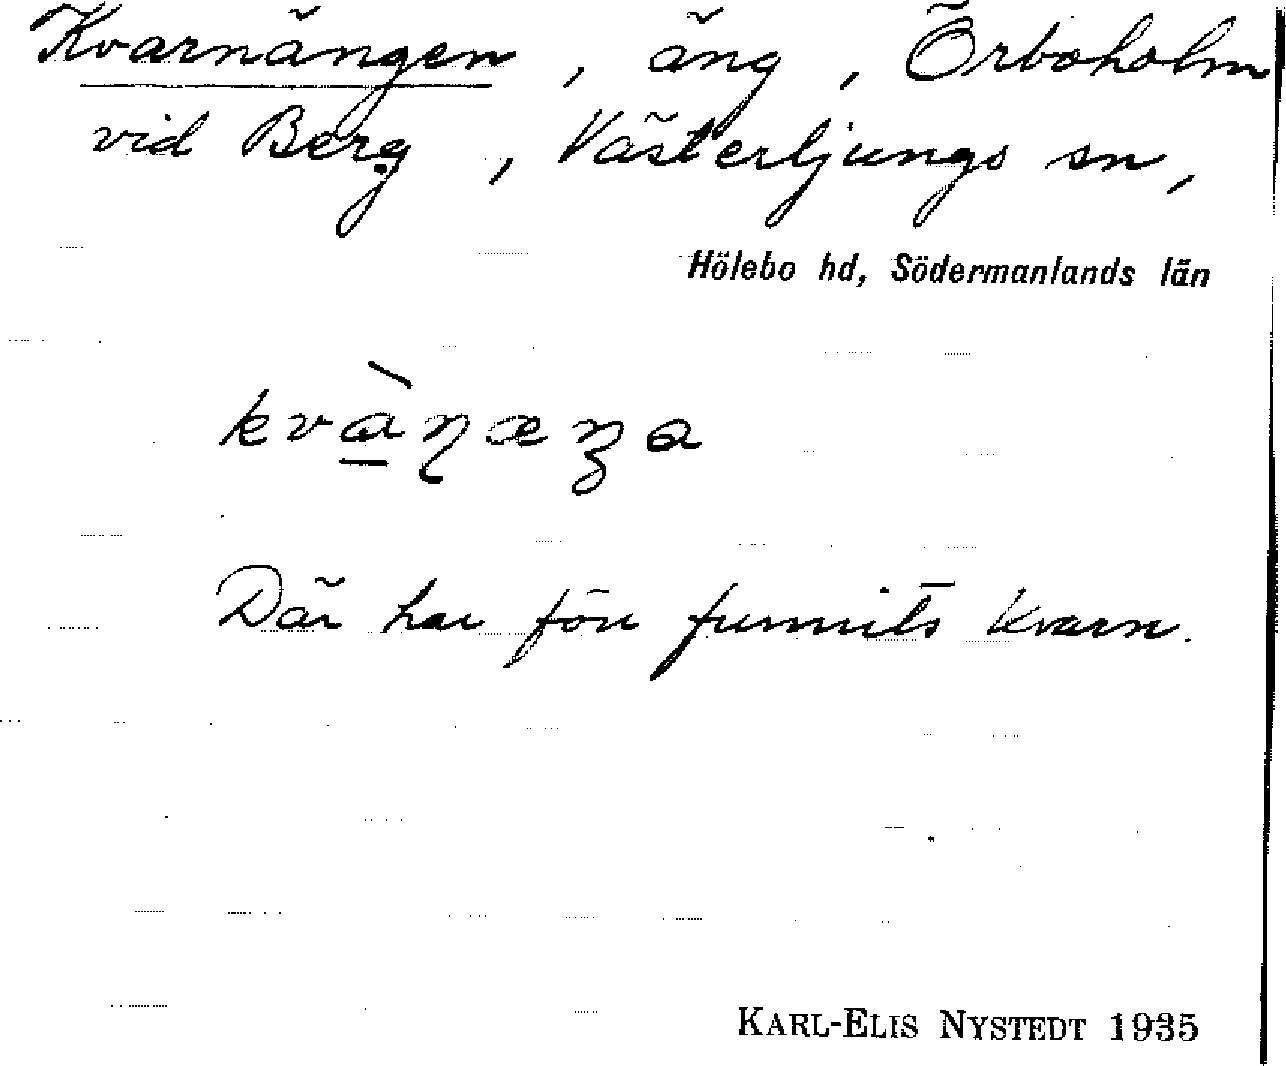 Kvarnängen, äng, Örboholm
vid Berg, Västerljungs sn,
Hölebo hd, Södermanlands län
kvàɳæŋa
Där har förr funnits kvarn.
KARL-ELIS NYSTEDT 1935